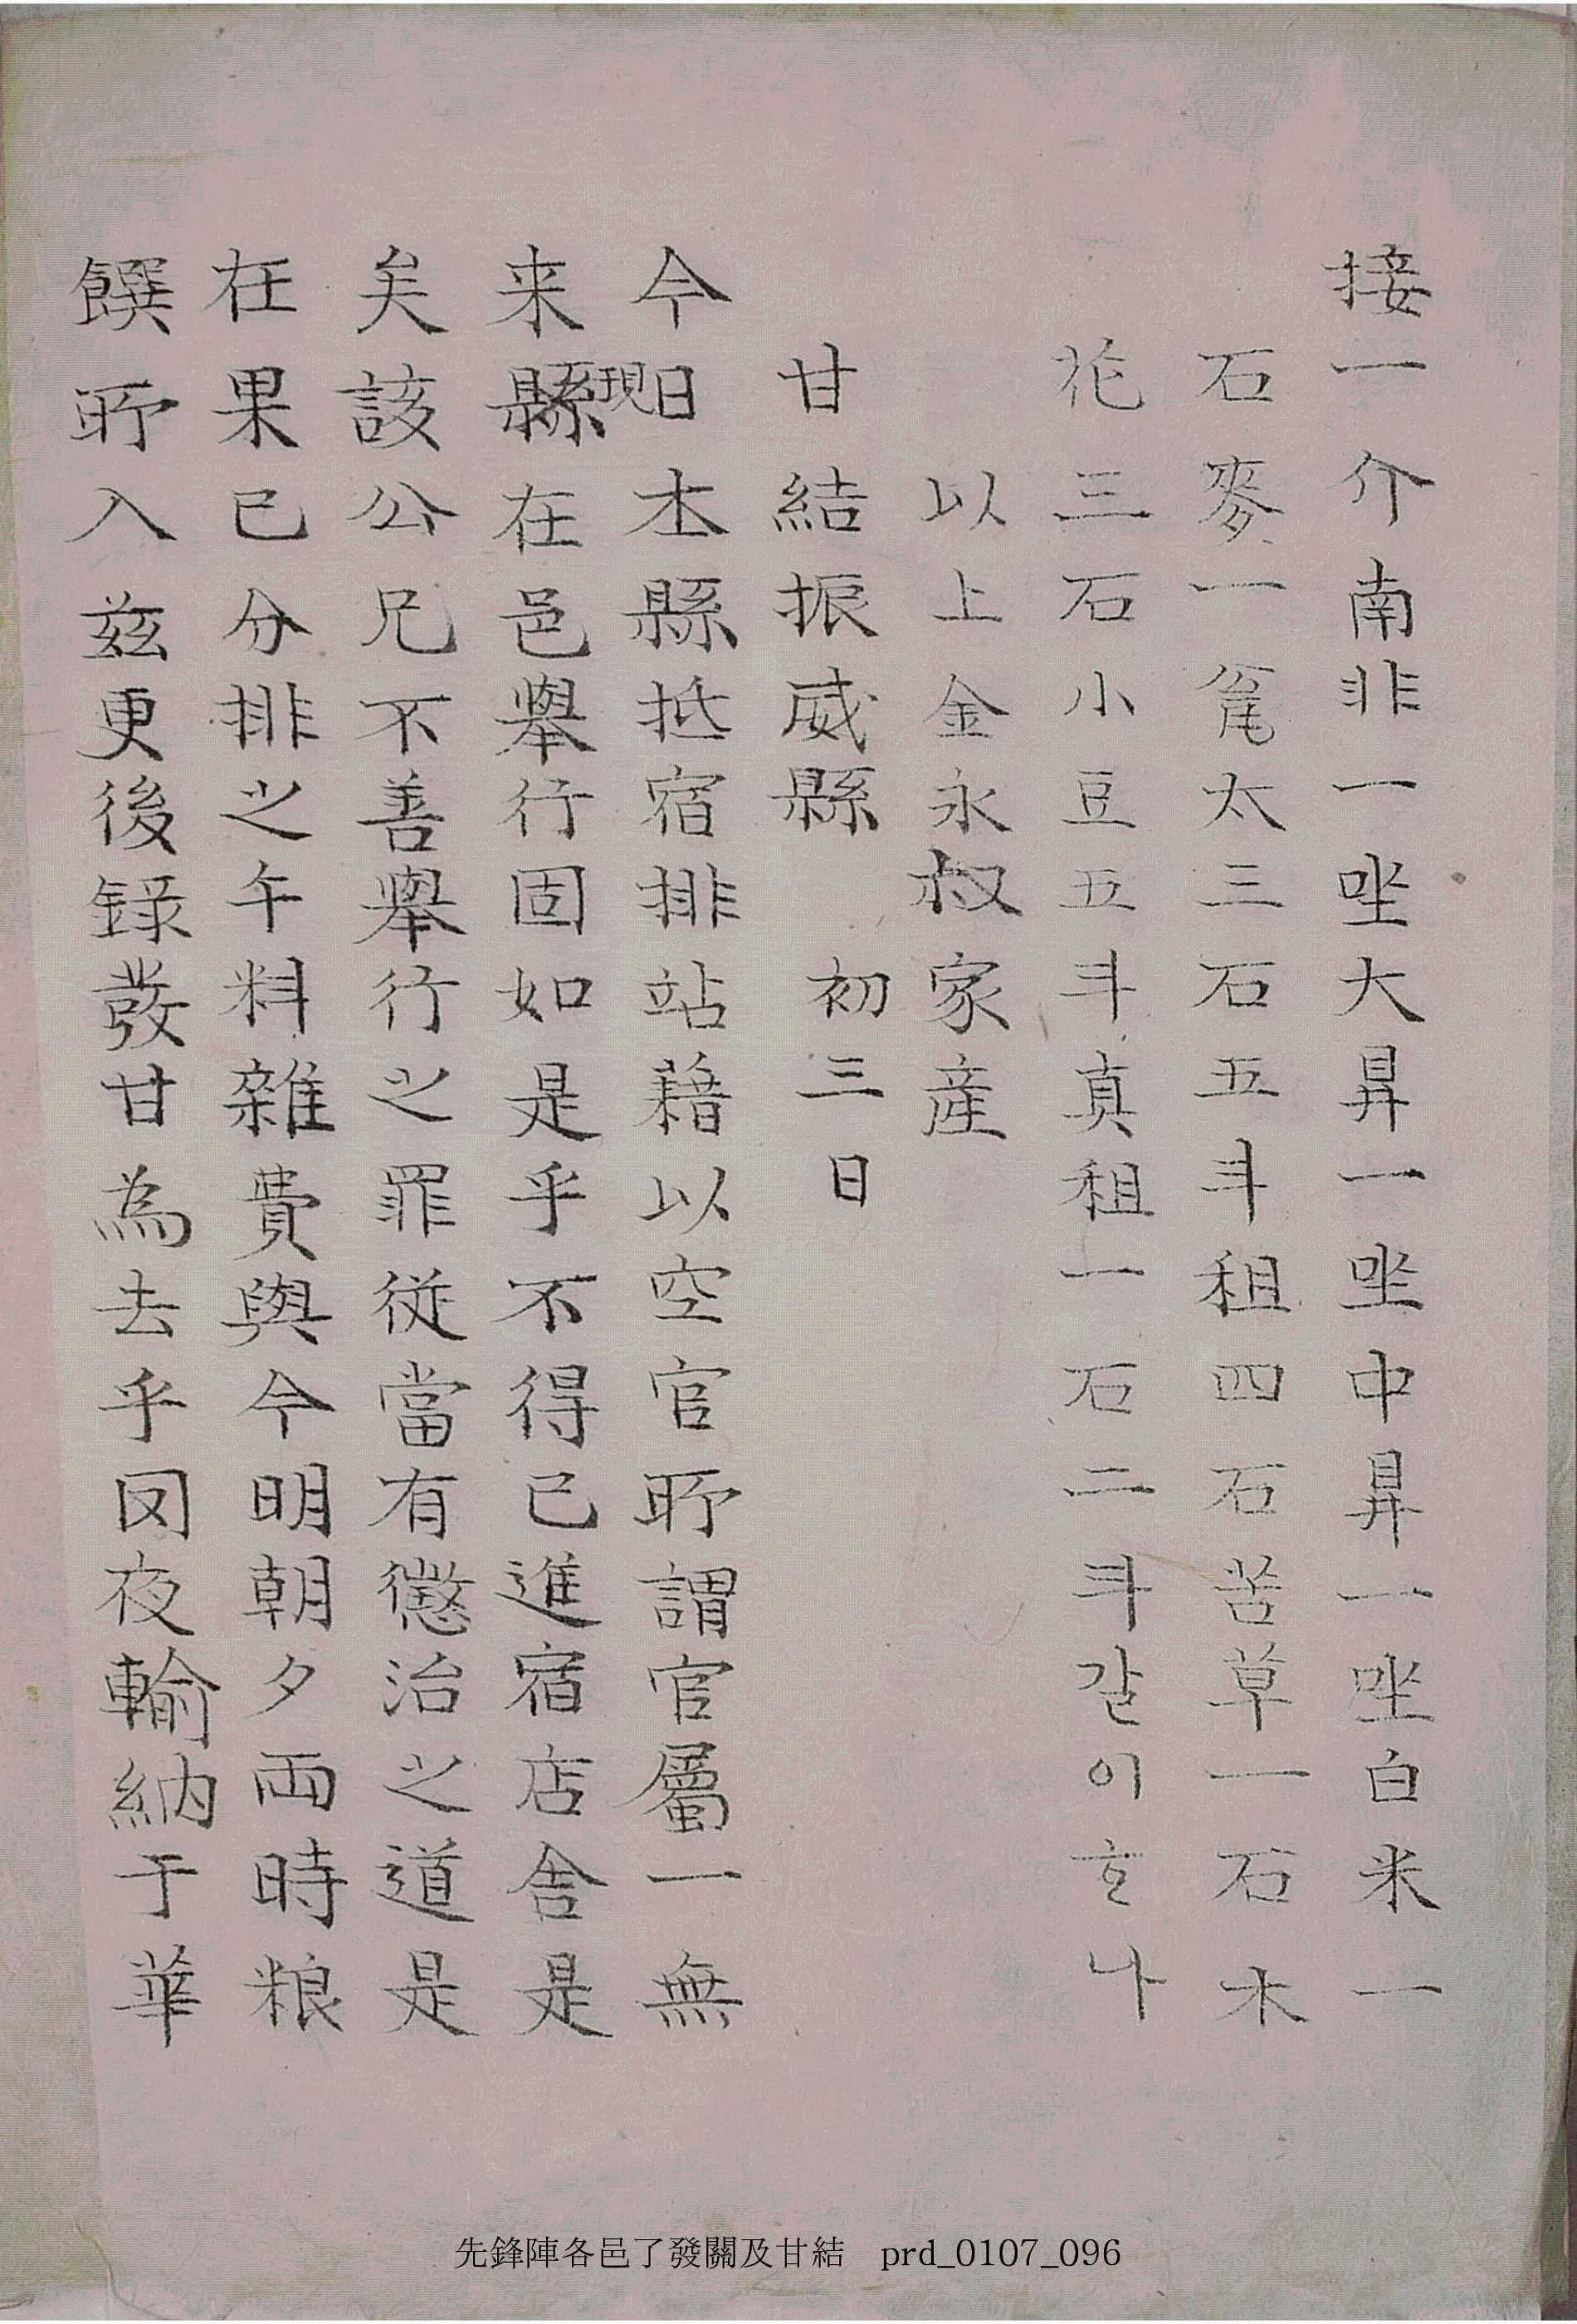 接一介南非一坐大昇一坐中昇一坐白米一
石麥一瓮太三石五斗租四石苦草一石木
花三石小豆五斗真租一石二斗갈이호나
以上金永叔家産
甘結振威縣 初三日
今日本縣抵宿排站藉以空官所謂官屬一無
来現縣在邑舉行固如是乎不得已進宿店舍是
矣該公兄不善舉行之罪從當有懲治之道是
在果已分排之午料雜費與今明朝夕両時粮
饌所入玆更後錄發甘為去乎罔夜輸納于華
先鋒陣各邑了發關及甘結 prd_0107_096